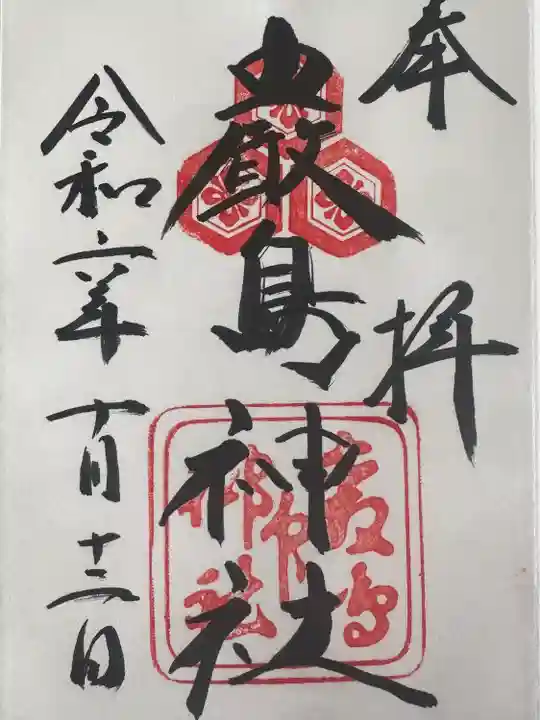 奉拝
嚴島神社
嚴島
神社
令和六年十月十二日